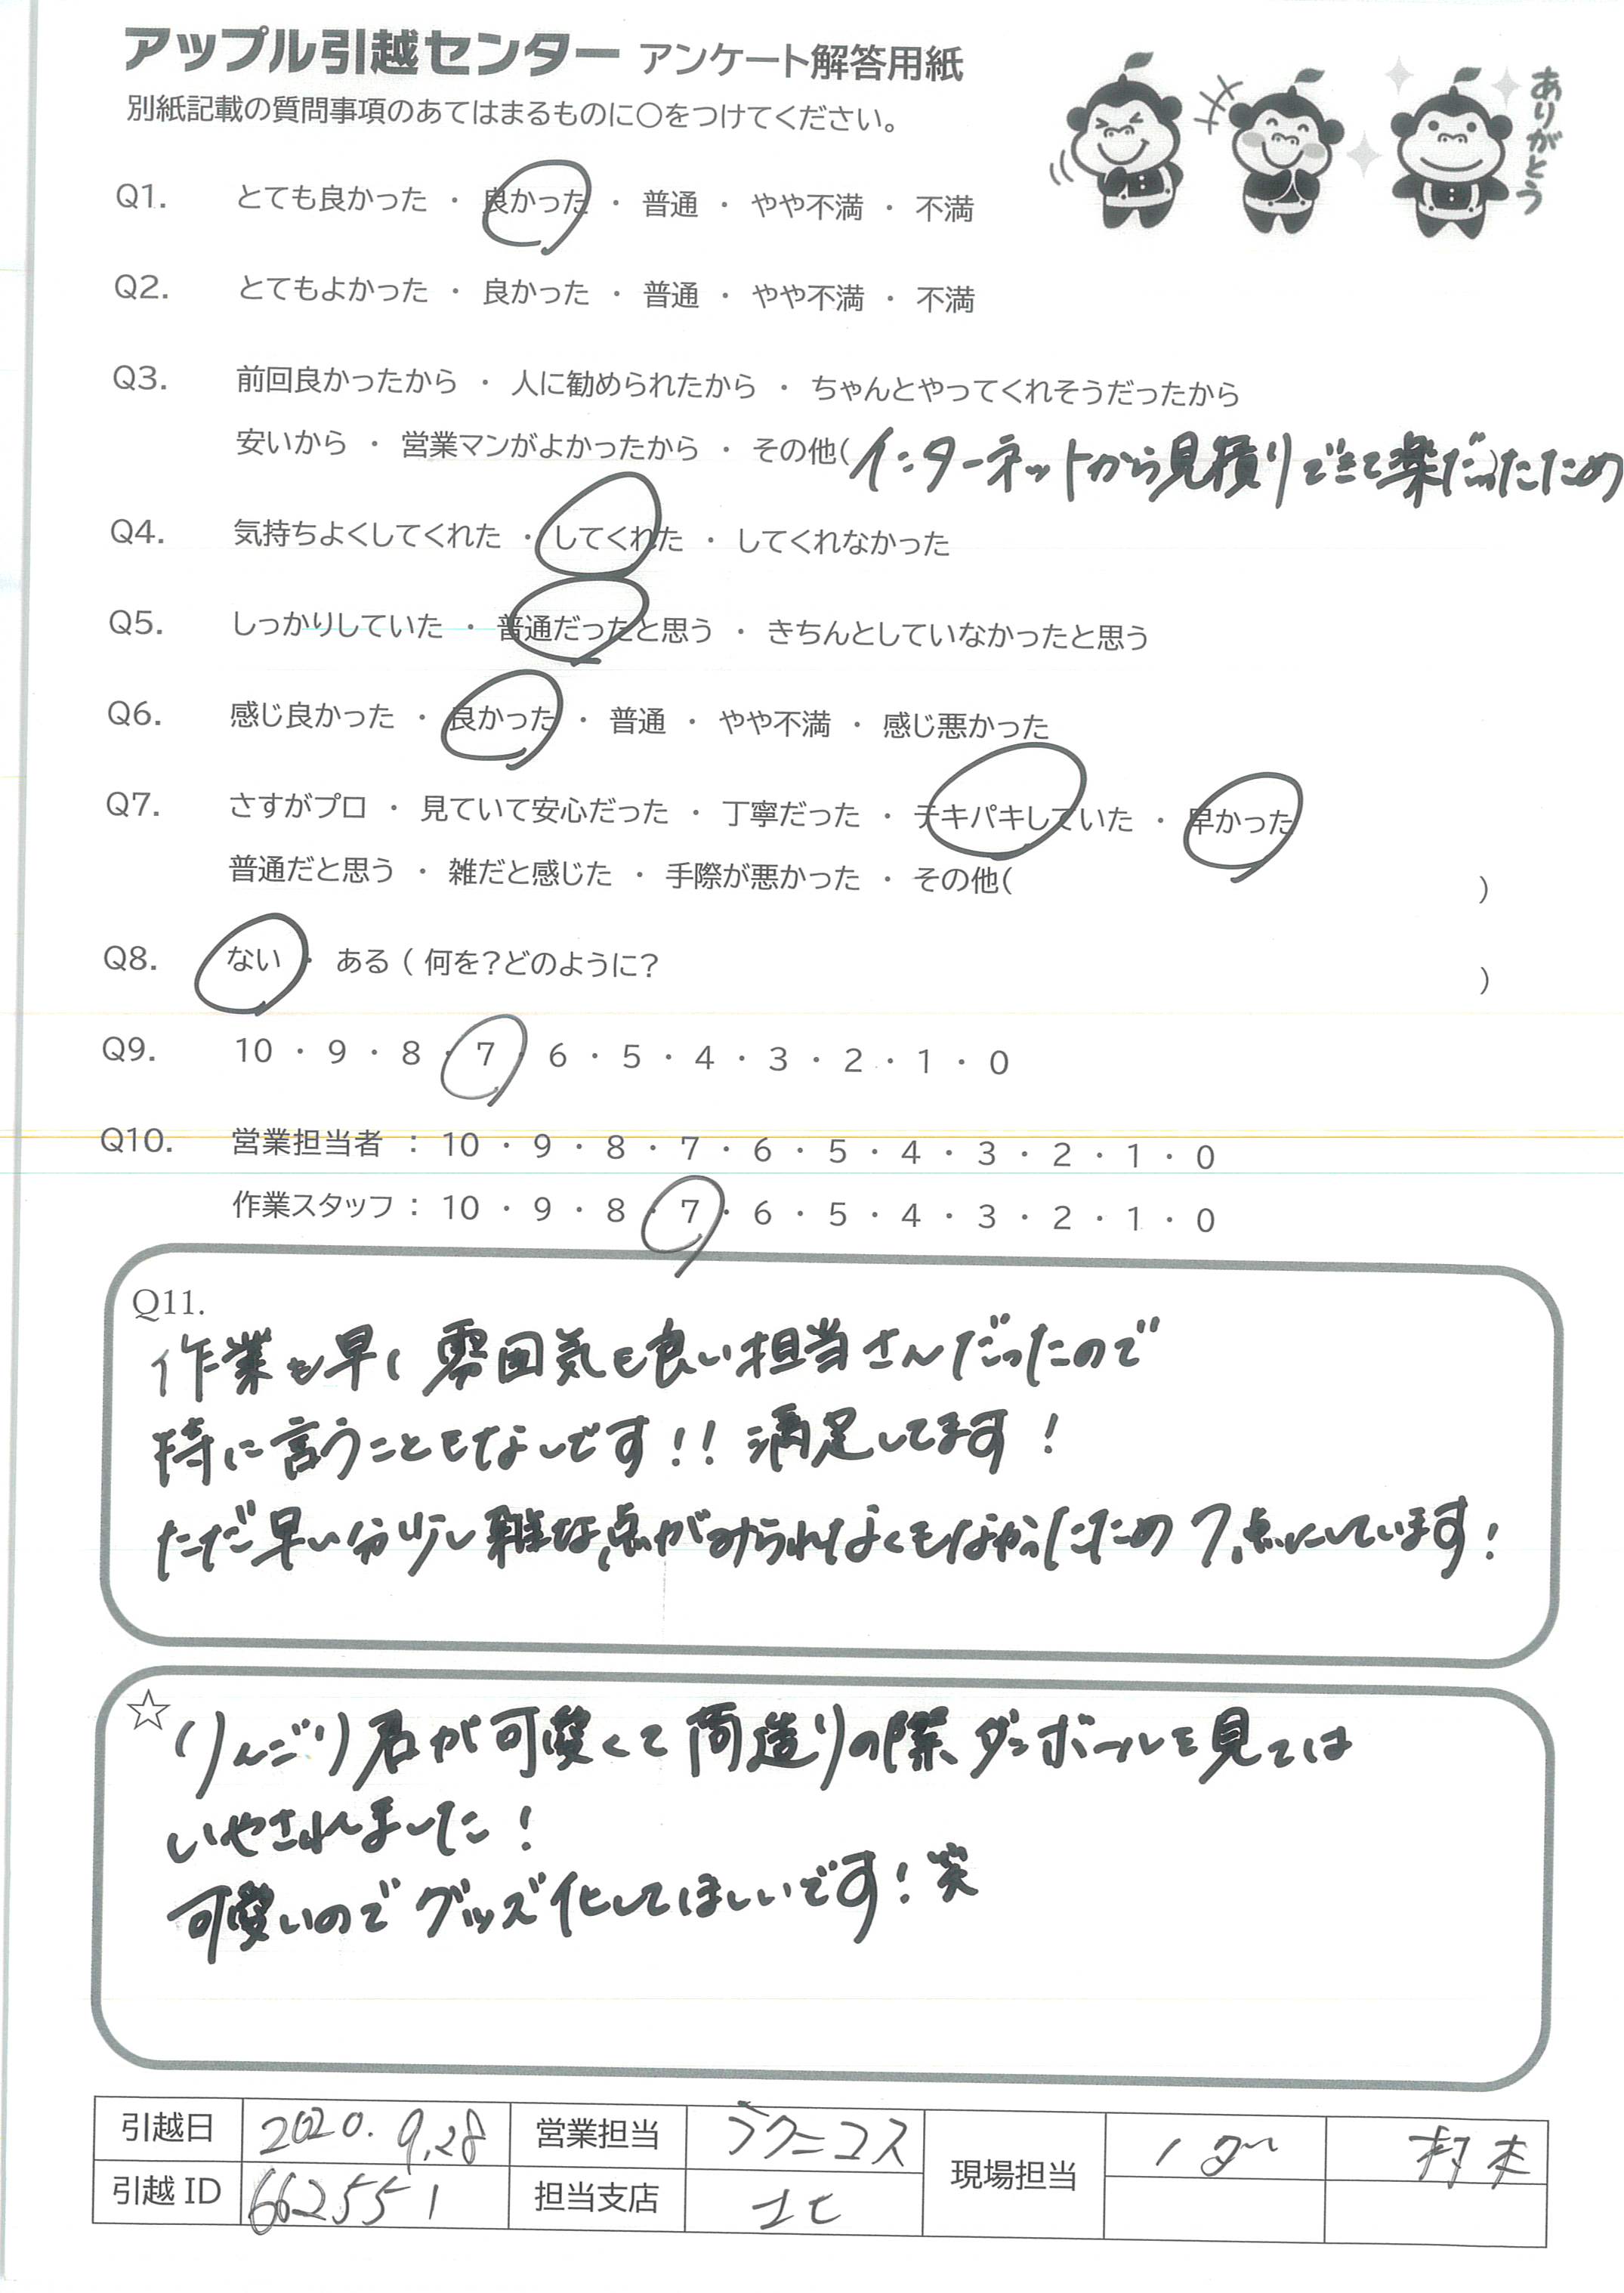 アップル引越センター アンケート解答用紙
別紙記載の質問事項のあてはまるものに〇をつけてください。
ありがとう
Q1. とても良かった ・ 良かった ・ 普通 ・ やや不満 ・ 不満
Q2. とてもよかった ・ 良かった ・ 普通 ・ やや不満 ・ 不満
Q3. 前回良かったから ・ 人に勧められたから ・ ちゃんとやってくれそうだったから
安いから ・ 営業マンがよかったから ・ その他( インターネットから見積りできて楽だったため
Q4. 気持ちよくしてくれた ・ してくれた ・ してくれなかった
Q5. しっかりしていた ・ 普通だったと思う ・ きちんとしていなかったと思う
Q6. 感じ良かった ・ 良かった ・ 普通 ・ やや不満 ・ 感じ悪かった
Q7. さすがプロ ・ 見ていて安心だった ・ 丁寧だった ・ テキパキしていた ・ 早かった
普通だと思う ・ 雑だと感じた ・ 手際が悪かった ・ その他( )
Q8. ない ・ ある ( 何を?どのように? )
Q9. 10 ・ 9 ・ 8 ・ 7 ・ 6 ・ 5 ・ 4 ・ 3 ・ 2 ・ 1 ・ 0
Q10. 営業担当者 : 10 ・ 9 ・ 8 ・ 7 ・ 6 ・ 5 ・ 4 ・ 3 ・ 2 ・ 1 ・ 0
作業スタッフ : 10 ・ 9 ・ 8 ・ 7 ・ 6 ・ 5 ・ 4 ・ 3 ・ 2 ・ 1 ・ 0
Q11.
作業も早く雰囲気も良い担当さんだったので
特に言うこともなしです!! 満足してます!
ただ早い分少し雑な点がみられなくもなかったため 7点にしています!
☆ りんごり君が可愛くて荷造りの際ダンボールを見ては
いやされました!
可愛いのでグッズ化してほしいです! 笑
引越日 2020. 9.28 営業担当 ラクニコス 現場担当 村木
引越ID 662551 担当支店 北